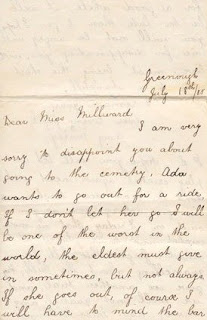 Greenough
July 18th/
Dear Miss Millward
I am very
sorry to disappoint you about
going to the cemetry, Ada
wants to go out for a ride
If I don't let her go I will
be one of the worst in the
world, the eldest must give
in sometimes, but not always
If she goes out, of course I
will have to mind the bar